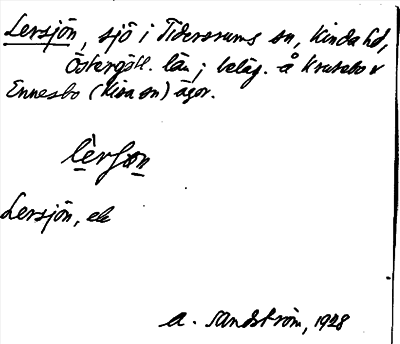 Lersjön, sjö i Tidersrums sn, Kinda hd,
Östergötl. län; beläg. å Krusebo o
Ennesbo (Kisa sn) ägor.
Lersjön, ek
A. Sandström, 1928